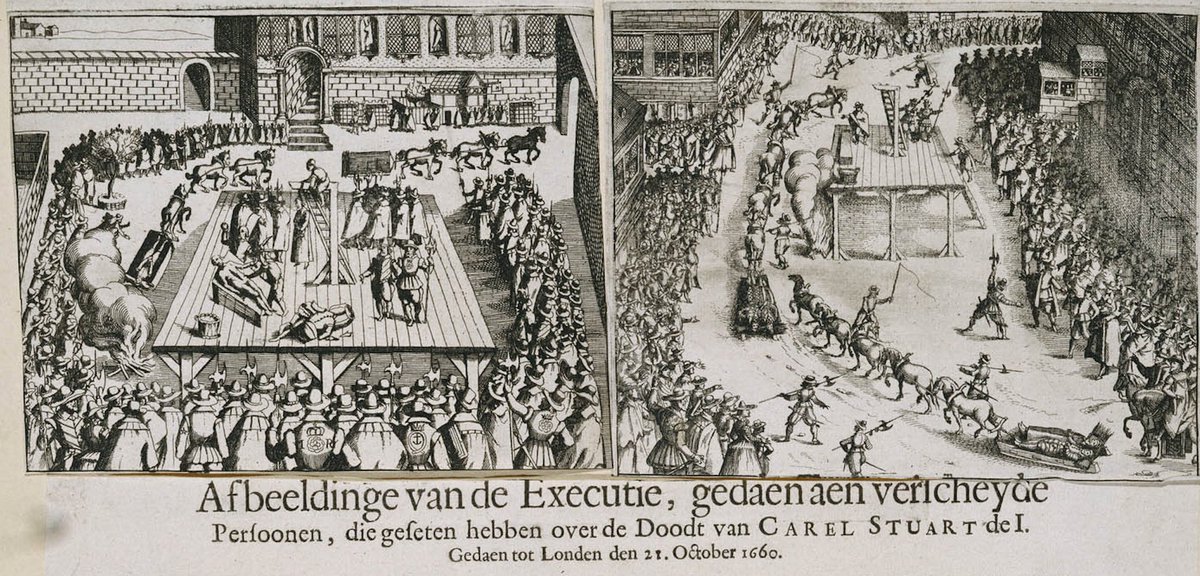 Afbeeldinge van de Executie, gedaen aen verſcheyde
Perſoonen, die geſeten hebben over de Doodt van CAREL STUART de I.
Gedaen tot Londen den 21. October 1660.